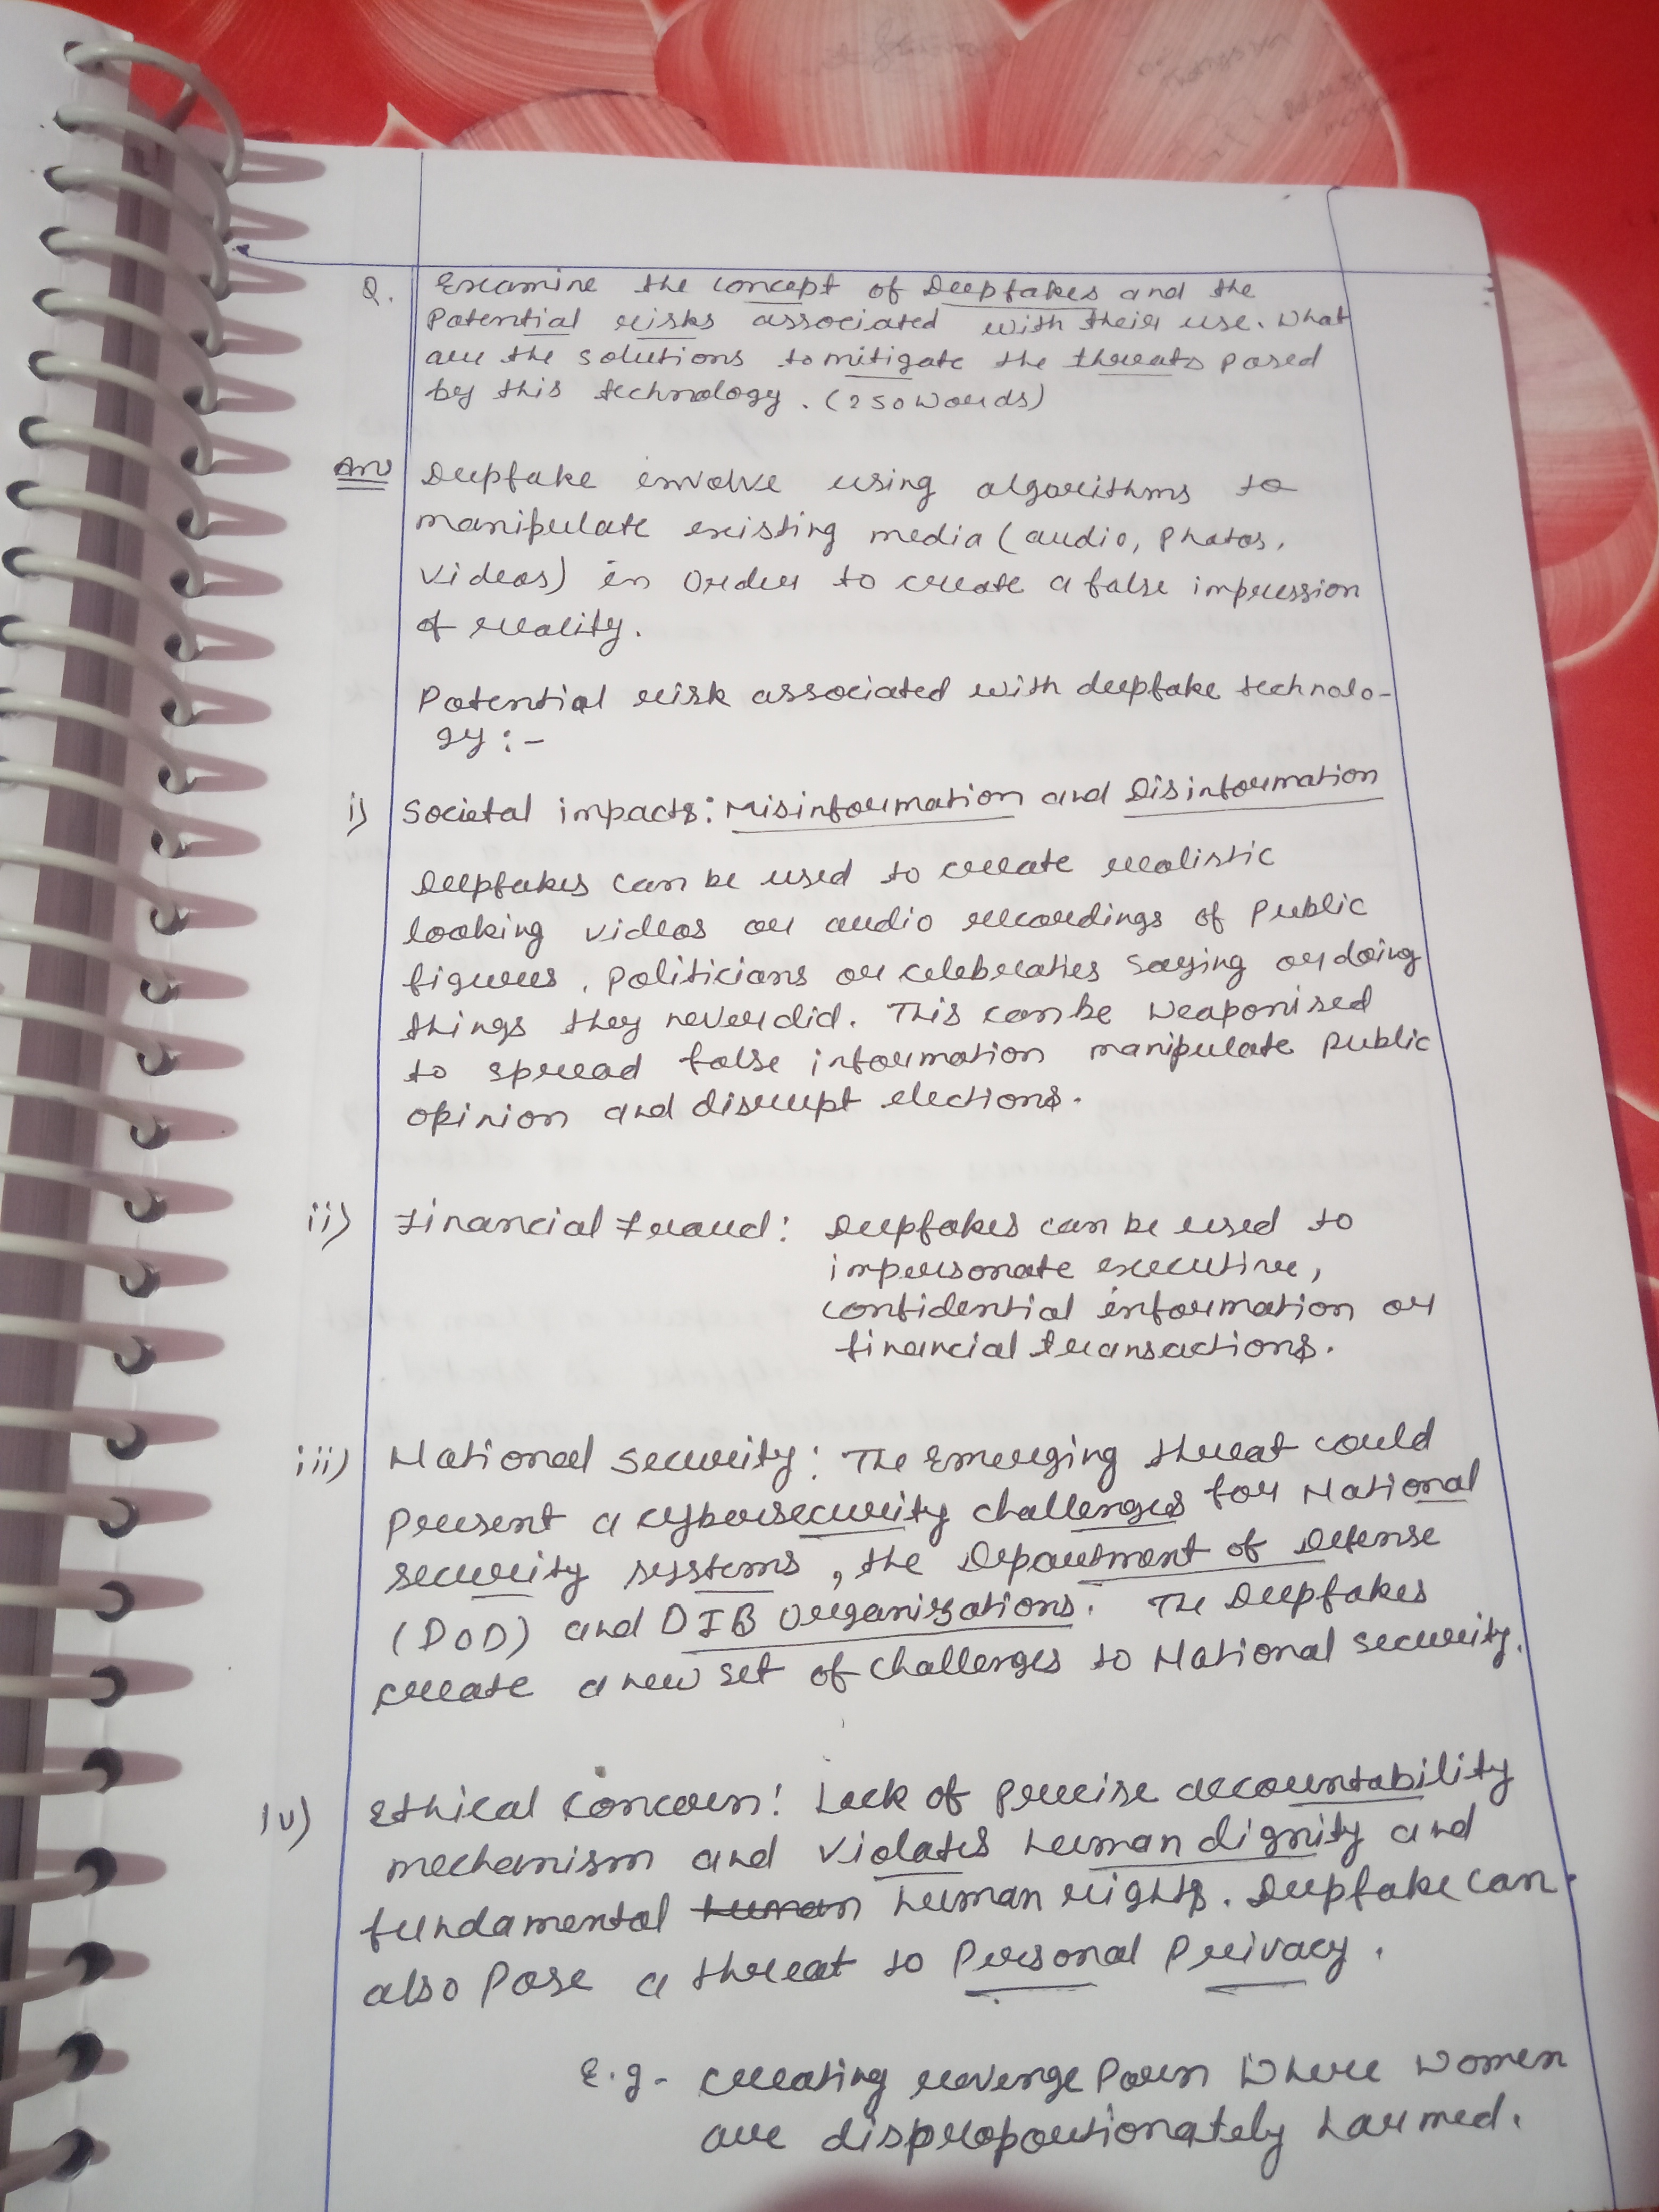 Q. Examine the concept of Deepfakes and the
Potential risks associated with their use. What
are the solutions to mitigate the threats posed
by this technology. (250 words)
Ans Deepfake involve using algorithms to
manipulate existing media (audio, Photos,
videos) in order to create a false impression
of reality.
Potential risk associated with deepfake technolo-
gy :-
i) Societal impacts: Misinformation and Disinformation
Deepfakes can be used to create realistic
looking videos or audio recordings of Public
figures, Politicians or celebraties saying or doing
things they never did. This can be weaponised
to spread false information manipulate Public
opinion and disrupt elections.
ii) Financial Fraud: Deepfakes can be used to
impersonate executive,
confidential information or
financial transactions.
iii) National Security: The Emerging threat could
present a cybersecurity challenges for National
security systems, the Department of Defense
(DOD) and DIB Organizations. The Deepfakes
create a new set of challenges to National security.
iv) Ethical Concern: Lack of precise accountability
mechanism and violates human dignity and
fundamental human human rights. Deepfake can
also Pose a threat to Personal Privacy.
E.g- creating revenge Porn Where women
are disproportionately harmed.